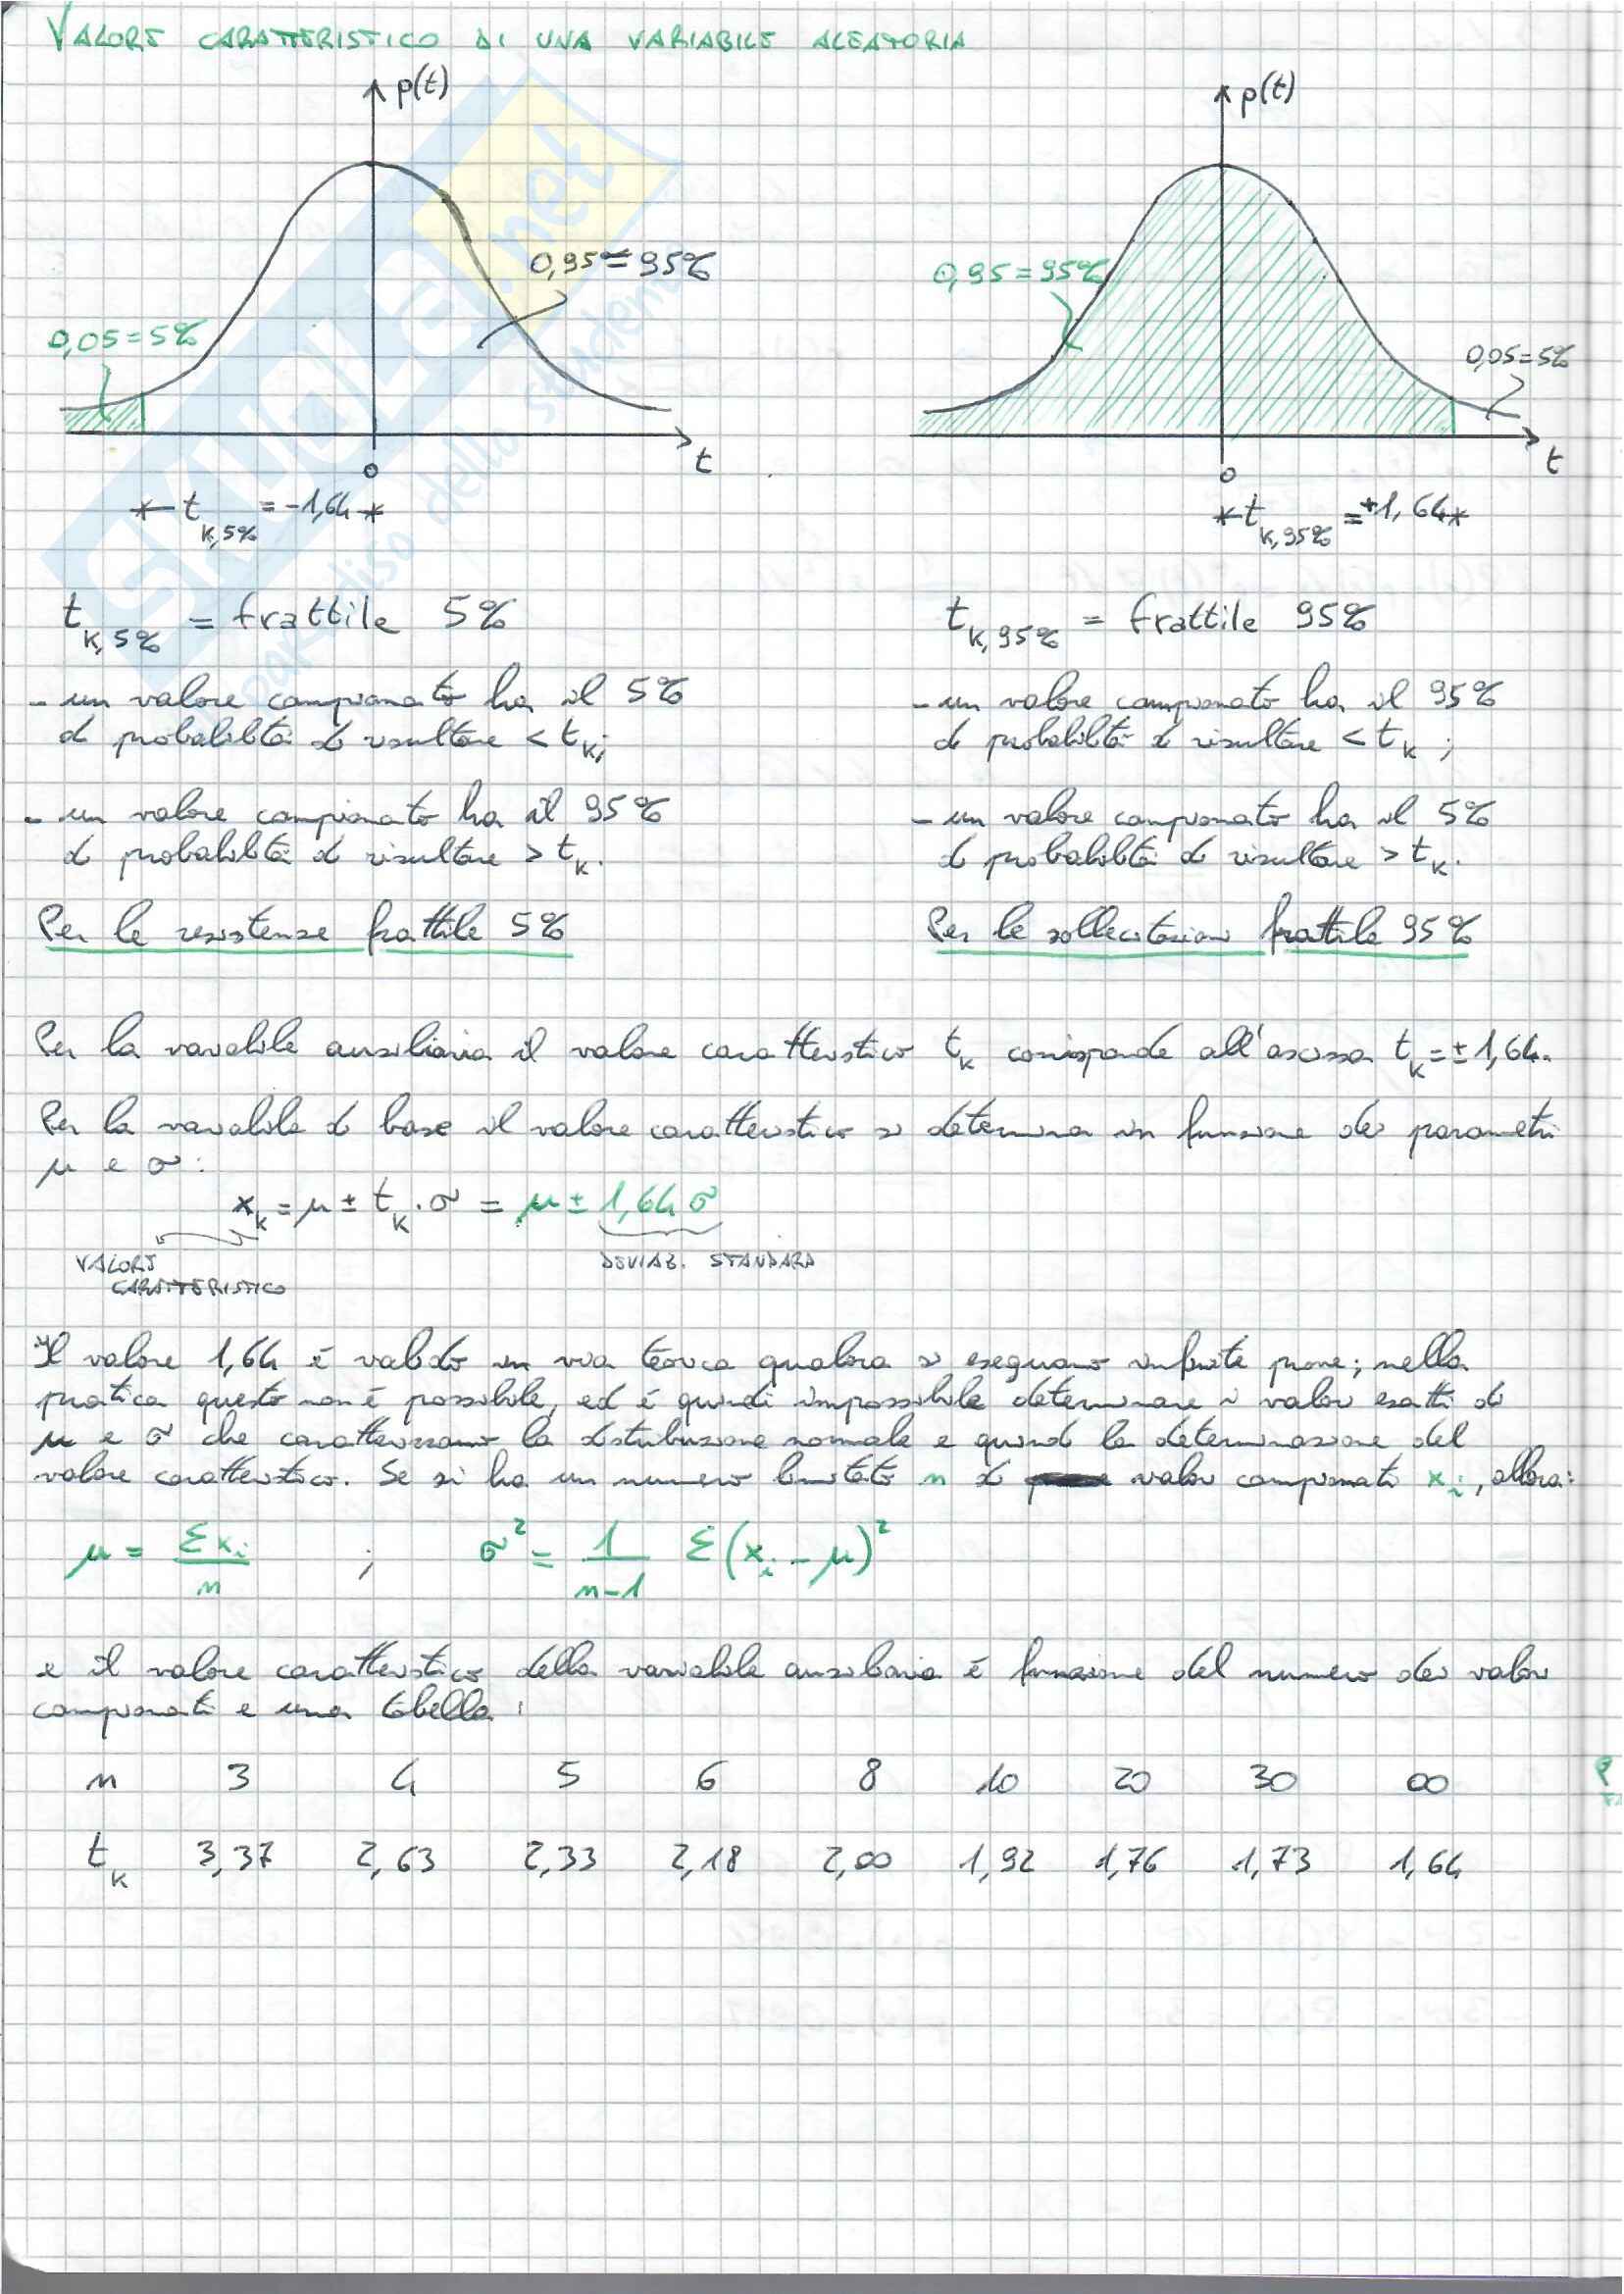 VALORE CARATTERISTICO DI UNA VARIABILE ALEATORIA
p(t)
0,95=95%
0,05=5%
t
0
t k,5% = -1,64
p(t)
0,95=95%
0,05=5%
t
0
t k,95% = +1,64
t k,5% = frattile 5%
- un valore campionato ha il 5%
di probabilità di risultare < t k;
- un valore campionato ha il 95%
di probabilità di risultare > t k.
Per le resistenze frattile 5%
t k,95% = frattile 95%
- un valore campionato ha il 95%
di probabilità di risultare < t k ;
- un valore campionato ha il 5%
di probabilità di risultare > t k.
Per le sollecitazioni frattile 95%
Per la variabile ausiliaria il valore caratteristico t k corrisponde all'ascissa t k = ± 1,64.
Per la variabile di base il valore caratteristico si determina in funzione dei parametri
μ e σ:
x k = μ ± t k · σ = μ ± 1,64 σ
VALORE
CARATTERISTICO
DEVIAZ. STANDARD
Il valore 1,64 è valido in via teorica qualora si eseguano infinite prove; nella
pratica questo non è possibile, ed è quindi impossibile determinare i valori esatti di
μ e σ che caratterizzano la distribuzione normale e quindi la determinazione del
valore caratteristico. Se si ha un numero limitato n di valori campionati x i, allora:
μ = Σ x i / n ; σ² = 1/(n-1) Σ (x i - μ)²
e il valore caratteristico della variabile ausiliaria è funzione del numero dei valori
campionati e una tabella:
n 3 4 5 6 8 10 20 30 ∞
t k 3,37 2,63 2,33 2,18 2,00 1,92 1,76 1,73 1,64
SKUOLA.net
paradiso dello studente